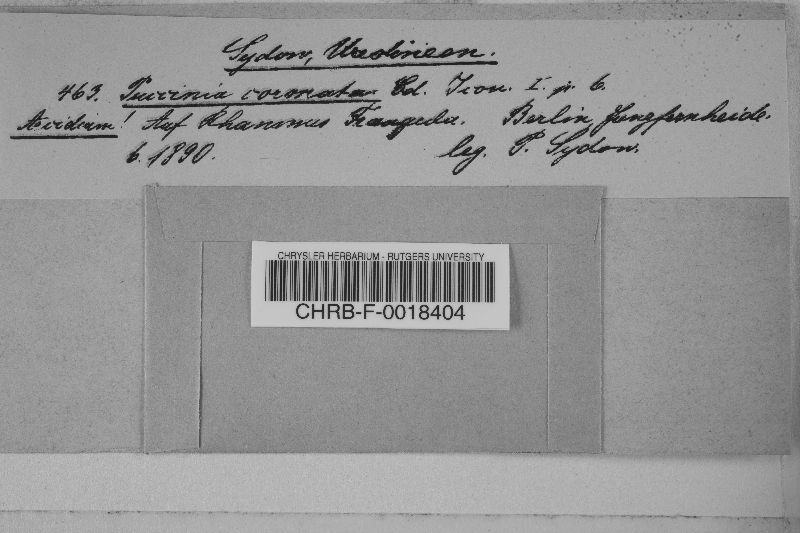 Sydow, Uredineen.
463. Puccinia coronata Cd. Icon. I. p. 6.
Aecidium! Auf Rhamnus Frangula. Berlin, Jungfernheide.
6. 1890. leg. P. Sydow.
CHRYSLER HERBARIUM - RUTGERS UNIVERSITY
CHRB-F-0018404